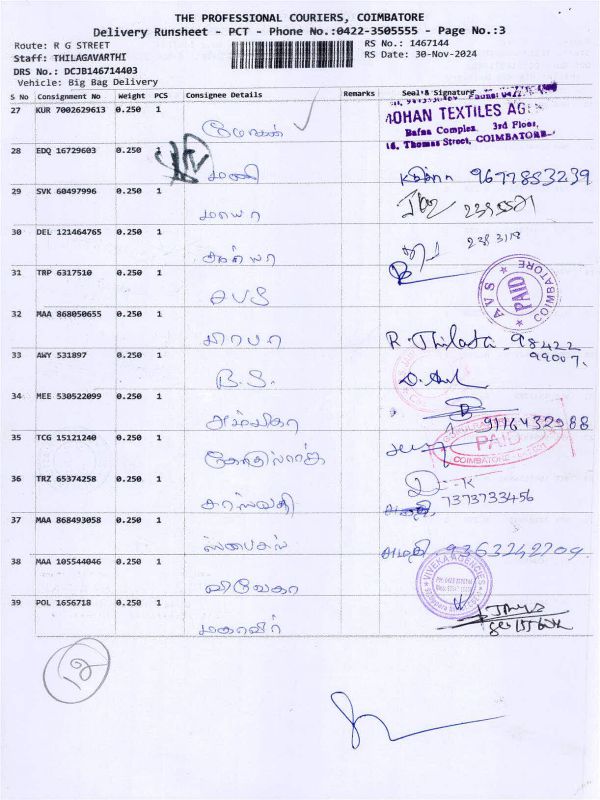 THE PROFESSIONAL COURIERS, COIMBATORE
Delivery Runsheet - PCT - Phone No.:0422-3505555 - Page No.:3
Route: R G STREET
RS No.: 1467144
Staff: THILAGAVARTHI
RS Date: 30-Nov-2024
DRS No.: DCJB146714403
Vehicle: Big Bag Delivery
S No Consignment No Weight PCS Consignee Details Remarks Seal & Signature
27 KUR 7002629613 0.250 1
TEXTILES
Bafna Complex, 3rd Floor,
Thomas Street, COIMBATORE
28 EDQ 16729603 0.250 மணி 9677853239
29 SVK 60497996 0.250 1 மாயா
30 DEL 121464765 0.250 1
31 TRP 6317510 0.250 1 AVS
AVS PAID COIMBATORE
32 MAA 868050655 0.250 1 மீரா
R. 98422
99007
33 AWY 531897 0.250 1 B.S.
34 MEE 530522099 0.250 1 அம்பிகா 9116432988
35 TCG 15121240 0.250 1
PAID
COIMBATORE
36 TRZ 65374258 0.250 1 சரஸ்வதி
7373733456
37 MAA 868493058 0.250 1 ஸ்பைசஸ் 9363242209
38 MAA 105544046 0.250 1 விவேகா
VIVEKA AGENCIES
39 POL 1656718 0.250 1 மகாவீர்